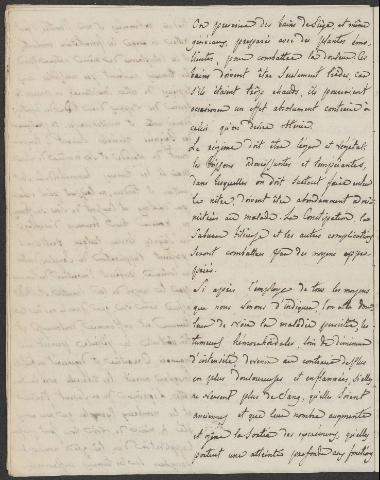 On prescrira des bains de siège et même
généraux, préparés avec des plantes émo-
lientes, pour combattre la douleur. Les
bains doivent être seulement tièdes, car
s'ils étaient trop chauds, ils pourraient
occasionner un effet absolument contraire à
celui qu'on désire obtenir.
Le régime doit être léger et végétal:
les boissons adoucissantes et tempérantes,
dans lesquelles on doit surtout faire entrer
le nitre, doivent être abondamment admi-
nistrées au malade. La Constipation, la
Saburre bilieuse et les autres complications
seront combattues par des moyens appro-
priés.
Si après l'employe de tous les moyens
que nous venons d'indiquer, l'on a la dou-
leur de voir la maladie persister, les
tumeurs hémorrhoïdales, loin de diminuer
d'intensité, devenir au contraire de plus
en plus douloureuses et enflammées, si elles
ne versent plus de Sang, qu'elles soient
anciennes et que leur nombre augmente
et gêne la Sortie des excrémens, qu'elles
portent une atteinte profonde aux fonctions